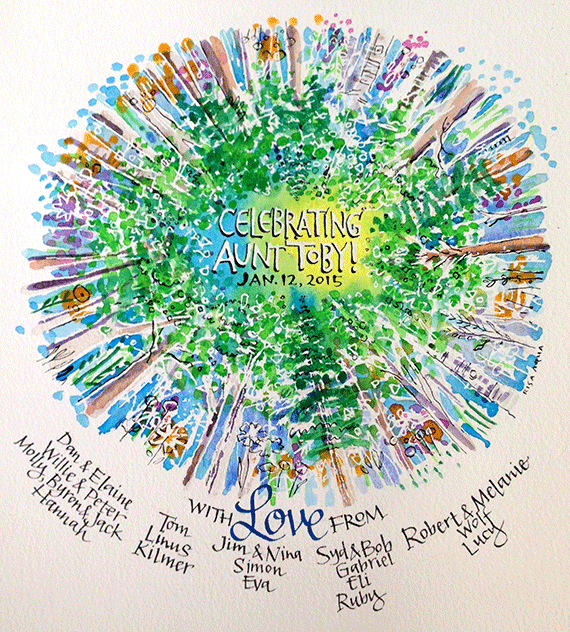 CELEBRATING
AUNT TOBY!
JAN. 12, 2015
WITH Love FROM
Dan & Elaine
Willie & Peter
Molly, Byron & Jack
Hannah
Tom
Linus
Kilmer
Jim & Nina
Simon
Eva
Syd & Bob
Gabriel
Eli
Ruby
Robert & Melanie
Wolf
Lucy